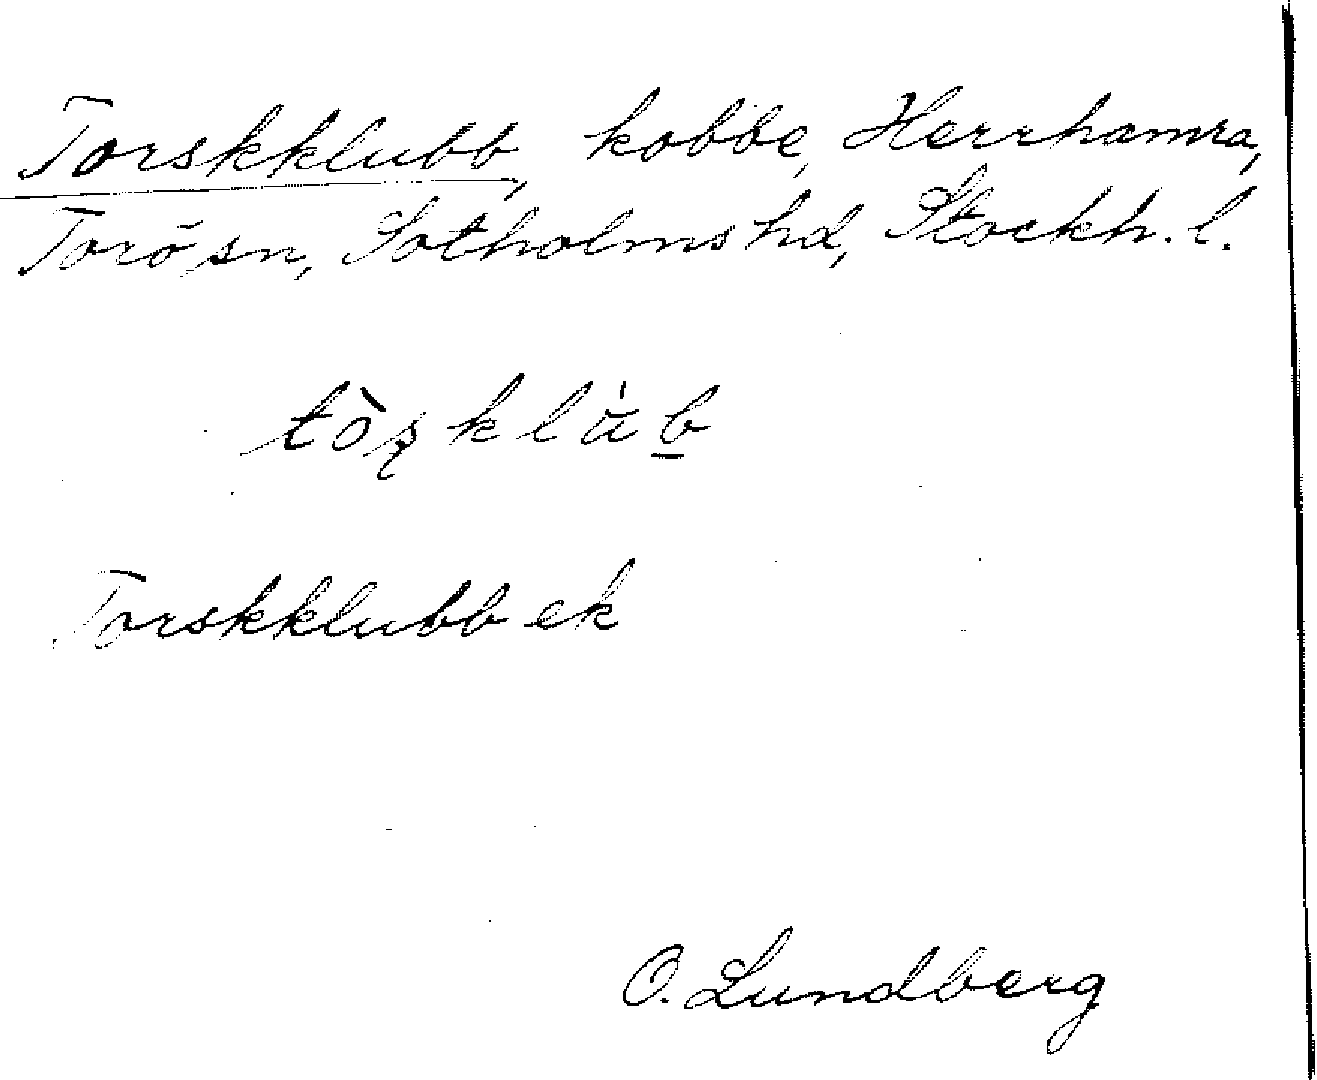 Torskklubb, kobbe, Herrhamra,
Torö sn, Sotholms hd, Stockh. l.
tòʂklu̇̀b̲
Torskklubb ek
O. Lundberg